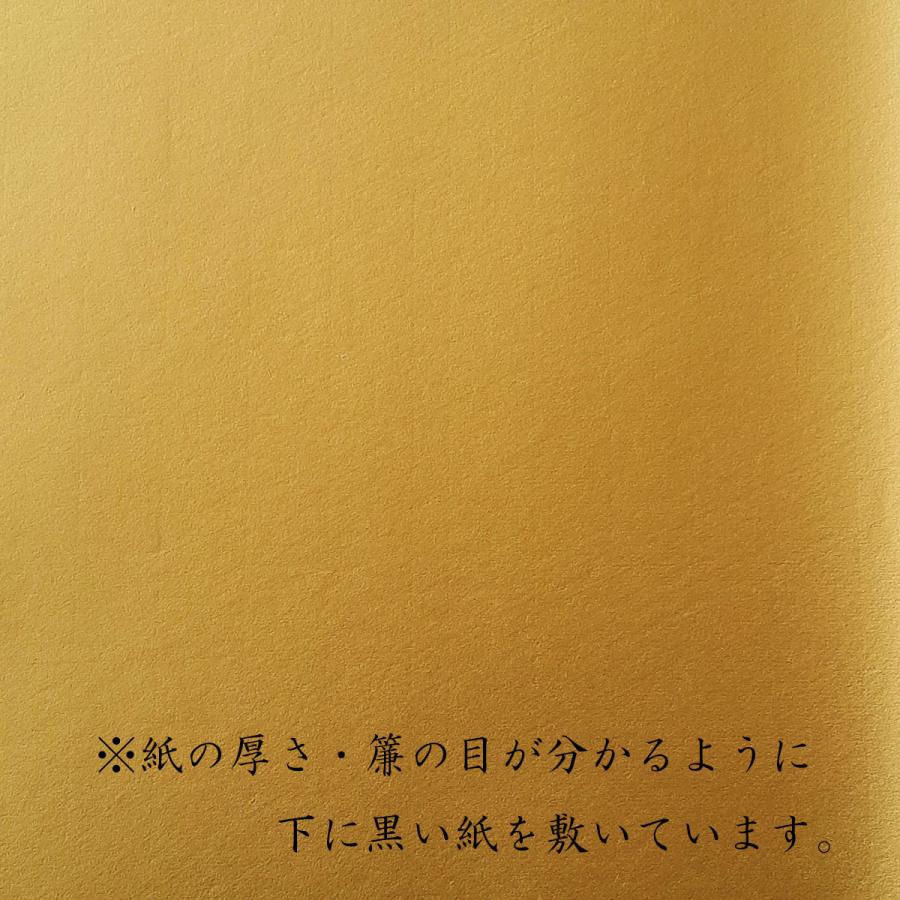 ※紙の厚さ・簾の目が分かるように
下に黒い紙を敷いています。